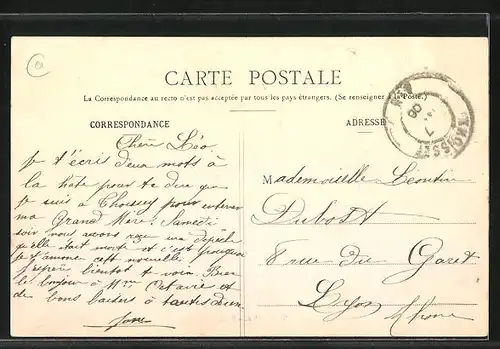 CARTE POSTALE
La Correspondance au recto n'est pas acceptée par tous les pays étrangers. (Se renseigner à la Poste.)
CORRESPONDANCE
ADRESSE
Chère Léo
Je t'écris deux mots à
la hâte pour te dire que
je suis à Thoissey pour enterrer
ma Grand Mère. Samedi
soir nous avons reçu une dépêche
qu'elle était morte et c'est pourquoi
je t'annonce cette nouvelle
J'espère bientôt te voir. Bien
le bonjour à Mme Octavie et
de bons baisers à toutes deux
Mademoiselle Léontine
Dubost
8 rue du Garet
Lyon
Rhône
THOISSEY
AIN
08